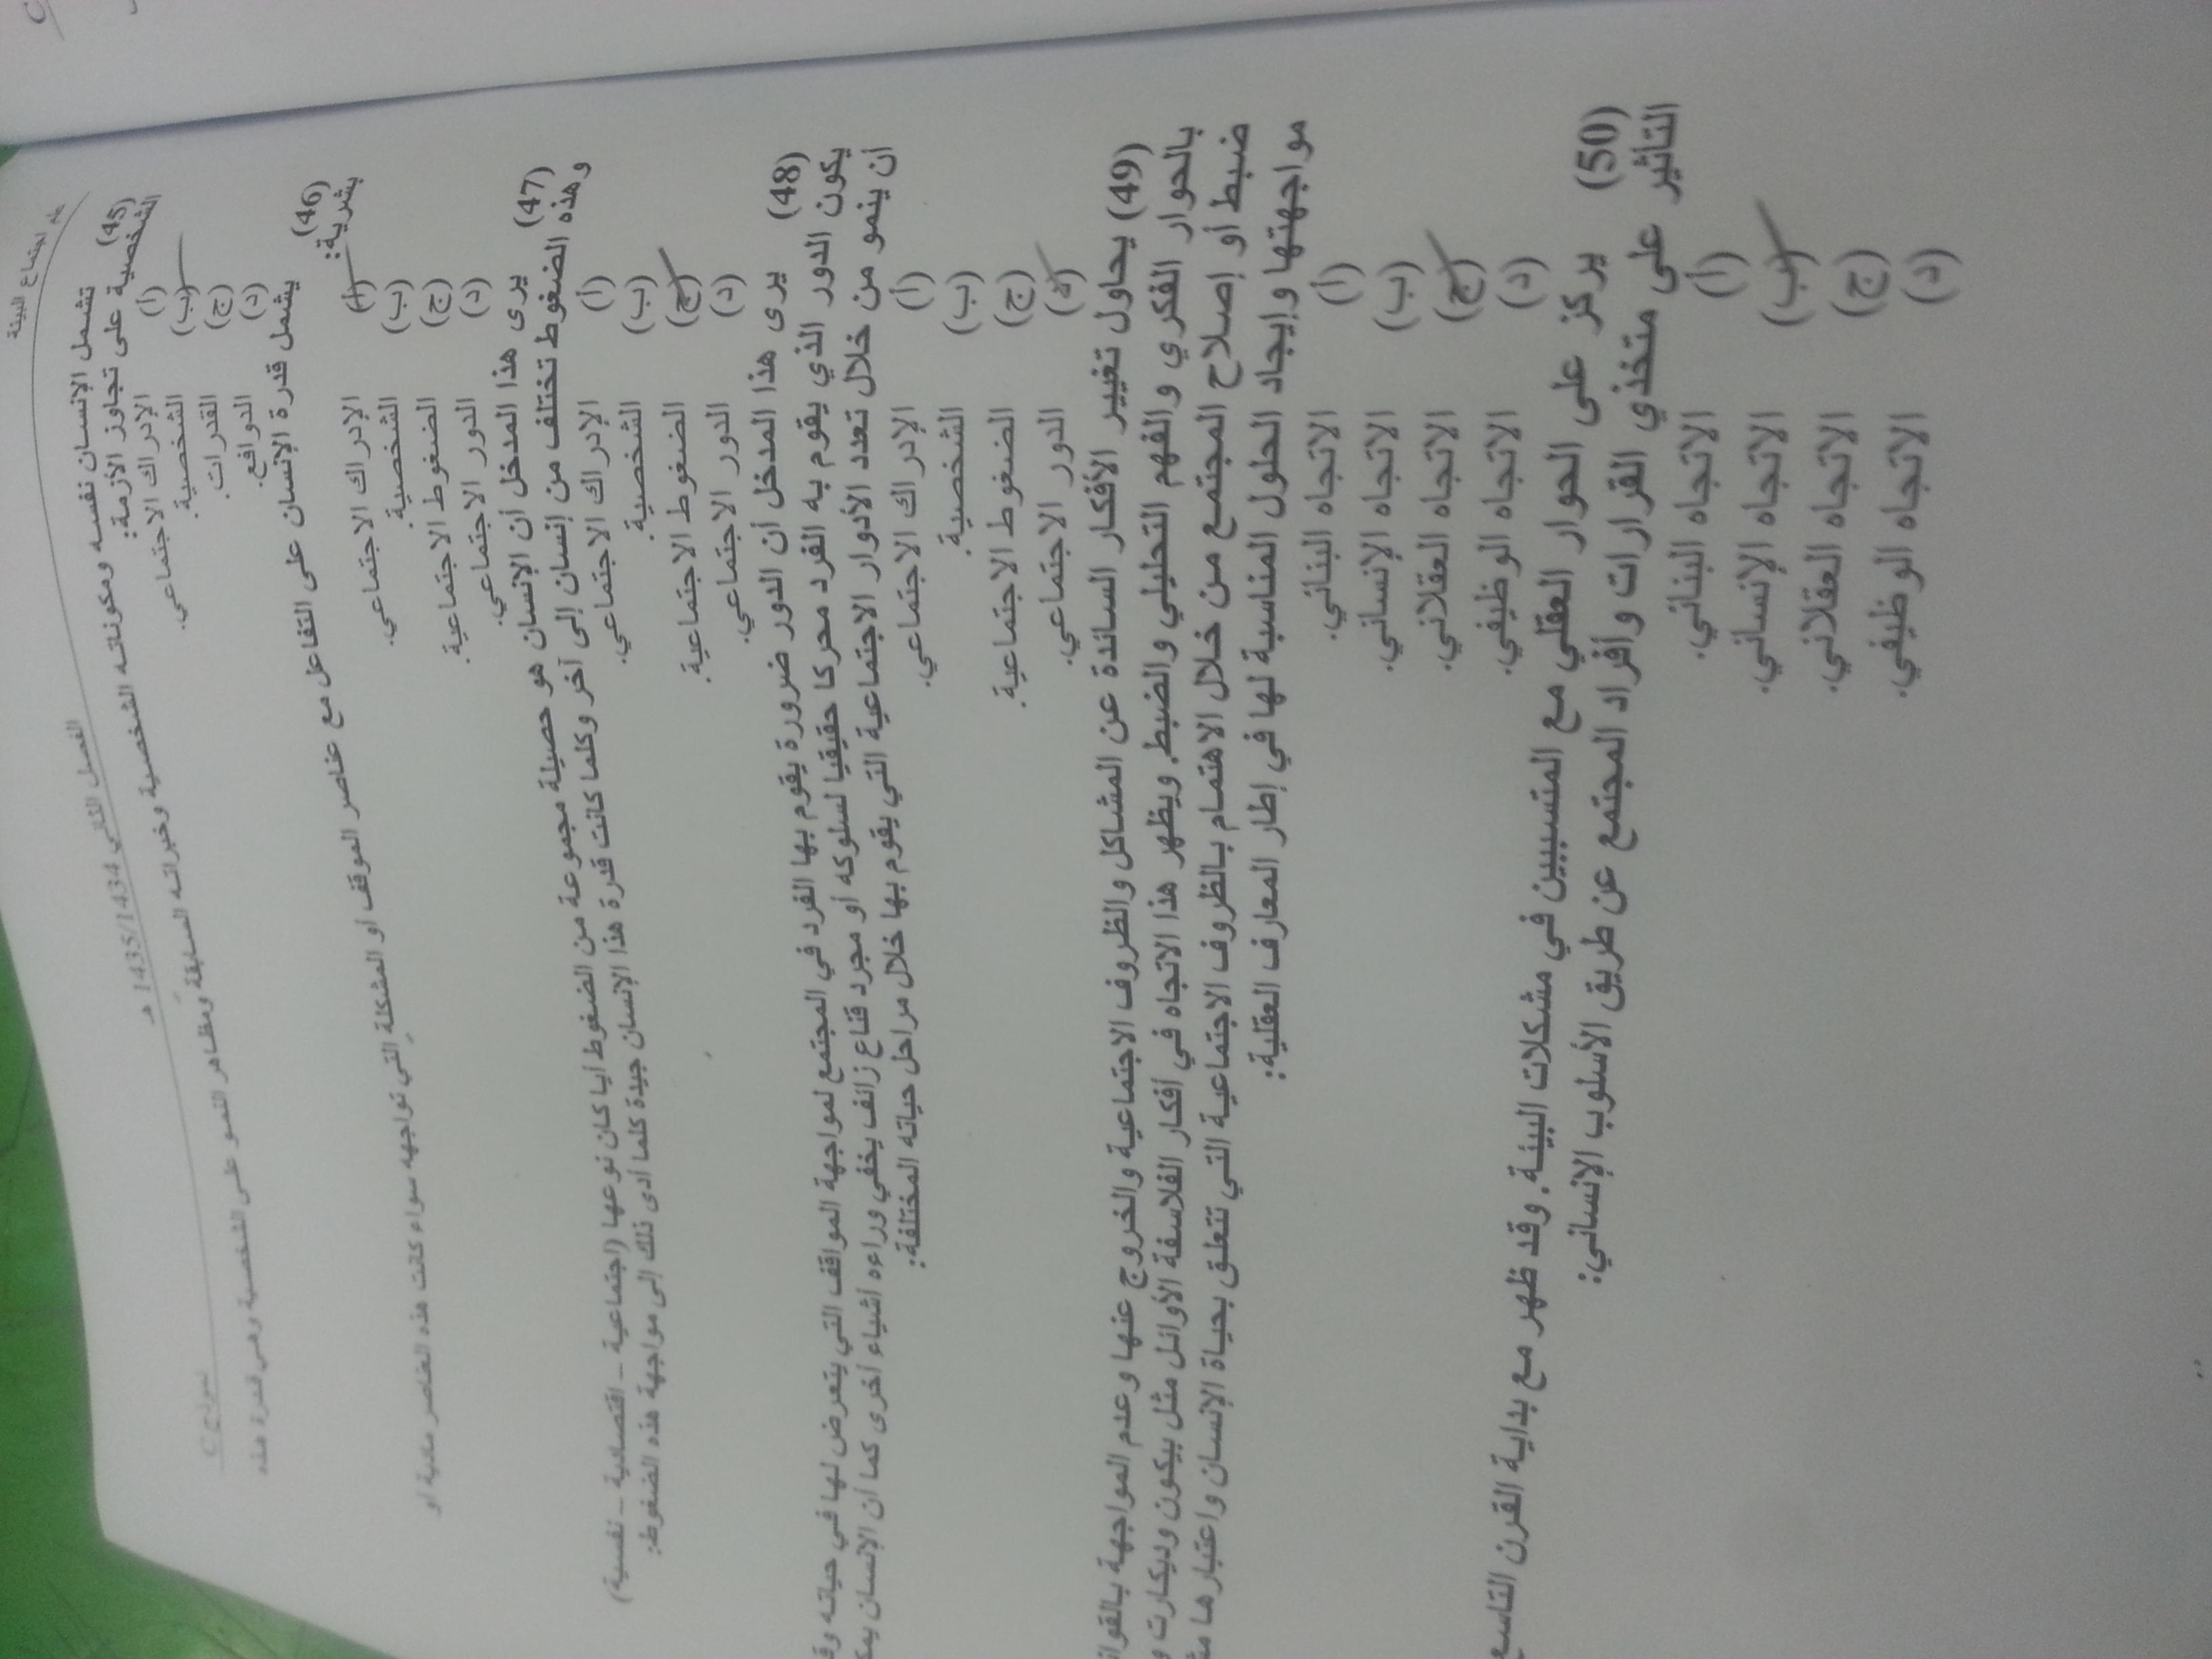 علم اجتماع البيئة الفصل الثاني 1435/1434 هـ نموذج C
(45) تشمل الإنسان نفسه ومكوناته الشخصية وخبراته السابقة ومظاهر النمو على الشخصية وهي قدرة هذه
الشخصية على تجاوز الأزمة:
(أ) الإدراك الاجتماعي.
(ب) الشخصية.
(ج) القدرات.
(د) الدوافع.
(46) يشمل قدرة الإنسان على التفاعل مع عناصر الموقف أو المشكلة التي تواجهه سواء كانت هذه العناصر مادية أو
بشرية:
(أ) الإدراك الاجتماعي.
(ب) الشخصية.
(ج) الضغوط الاجتماعية.
(د) الدور الاجتماعي.
(47) يرى هذا المدخل أن الإنسان هو حصيلة مجموعة من الضغوط أيا كان نوعها (اجتماعية – اقتصادية – نفسية)
وهذه الضغوط تختلف من إنسان إلى آخر وكلما كانت قدرة هذا الإنسان جيدة كلما أدى ذلك إلى مواجهة هذه الضغوط:
(أ) الإدراك الاجتماعي.
(ب) الشخصية.
(ج) الضغوط الاجتماعية.
(د) الدور الاجتماعي.
(48) يرى هذا المدخل أن الدور ضرورة يقوم بها الفرد في المجتمع لمواجهة المواقف التي يتعرض لها في حياته
يكون الدور الذي يقوم به الفرد محركا حقيقيا لسلوكه أو مجرد قناع زائف يخفي وراءه أشياء أخرى كما أن الإنسان
أن ينمو من خلال تعدد الأدوار الاجتماعية التي يقوم بها خلال مراحل حياته المختلفة:
(أ) الإدراك الاجتماعي.
(ب) الشخصية.
(ج) الضغوط الاجتماعية.
(د) الدور الاجتماعي.
(49) يحاول تغيير الأفكار السائدة عن المشاكل والظروف الاجتماعية والخروج عنها وعدم المواجهة
بالحوار الفكري والفهم التحليلي والضبط. ويظهر هذا الاتجاه في أفكار الفلاسفة الأوائل مثل بيكون وديكارت
ضبط أو إصلاح المجتمع من خلال الاهتمام بالظروف الاجتماعية التي تتعلق بحياة الإنسان واعتبارها
مواجهتها وإيجاد الحلول المناسبة لها في إطار المعارف العقلية:
(أ) الاتجاه البنائي.
(ب) الاتجاه الإنساني.
(ج) الاتجاه العقلاني.
(د) الاتجاه الوظيفي.
(50) يركز على الحوار العقلي مع المتسببين في مشكلات البيئة. وقد ظهر مع بداية القرن التاسع
التأثير على متخذي القرارات وأفراد المجتمع عن طريق الأسلوب الإنساني:
(أ) الاتجاه البنائي.
(ب) الاتجاه الإنساني.
(ج) الاتجاه العقلاني.
(د) الاتجاه الوظيفي.